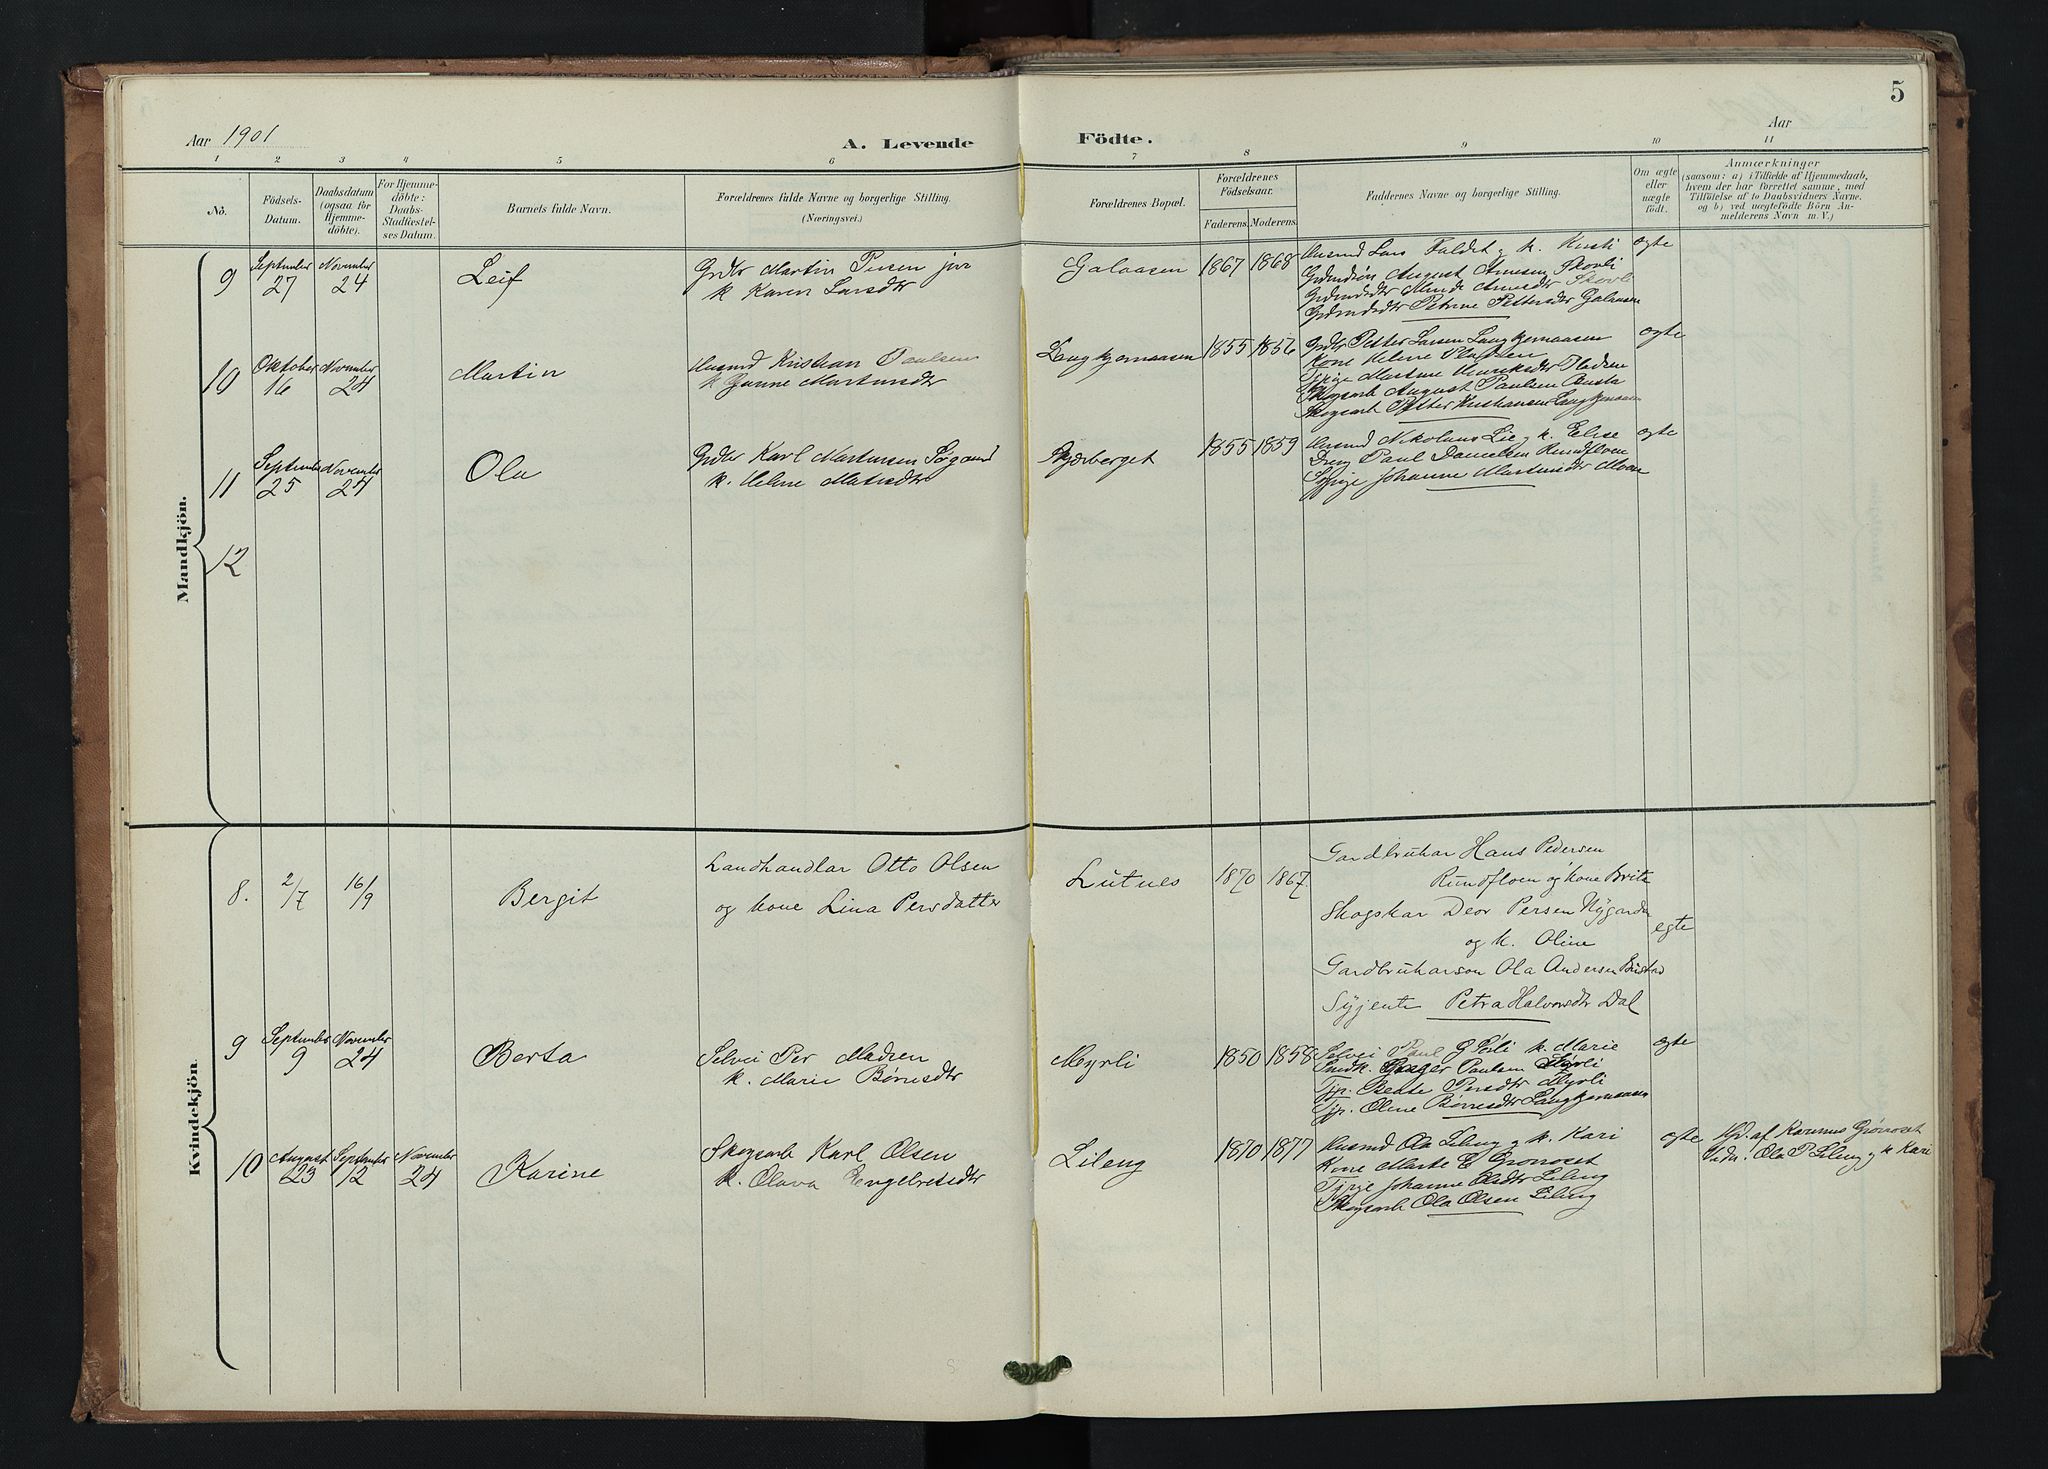 5
Aar 1901
A. Levende Födte.
Aar
1 2 3 4 5 6 7 8 9 10 11
Nô.
Födsels-
Datum.
Daabsdatum
(ogsaa for
Hjemme-
döbte).
For Hjemme-
döbte:
Daabs-
Stadfæstel-
ses Datum.
Barnets fulde Navn.
Forældrenes fulde Navne og borgerlige Stilling.
(Næringsvei.)
Forældrenes Bopæl.
Forældrenes
Födselsaar.
Faderens. Moderens.
Faddernes Navne og borgerlige Stilling.
Om ægte
eller
uægte
födt.
Anmærkninger
(saasom: a) i Tilfælde af Hjemmedaab,
hvem der har forrettet samme, med
Tilföielse af to Daabsvidners Navne,
og b) ved uægtefödte Börn An-
melderens Navn m. V.)
Mandkjön.
9
September
27
November
24
Leif
Grdbr Martin Persen jnr
k Karen Larsdtr
Galaasen
1867 1868
Lars Faldet og k. Kristi
August Arnesen Skovli
Arnesdtr Skovli
Petrine Pettersdtr Galaasen
ogte
10
Oktober
16
November
24
Martin
Husmd Kristian Paulsen
k Gunne Martinsdtr
Langkjernaasen
1855 1856
Grdbr Petter Larsen Langkjernaasen
Kone Helene
Tjpige Martine Henriksdtr
Skogsarb August Paulsen
Skogsarb Petter Kristiansen Langkjernaasen
ogte
11
September
25
November
24
Ola
Grdbr Karl Martinsen
k. Helene Matisdtr
Skjærberget
1855 1859
Nikolaus Lie og k. Elise
Dreng Paul Danielsen Rundfloen
Johanne Martinsdtr Moen
ogte
12
Kvindekjön.
8.
2/7
16/9
Bergit
Landhandlar Otto Olsen
og kone Lina Persdatter
Lutnes
1870 1867.
Gardbrukar Hans Pedersen
Rundfloen og kone Brita
Skogskar Persen Nygarden
og k. Oline
Gardbrukarson Ola Andersen Bustad
Syjente Petra Halvorsdtr Dal
egte
9
September
9
November
24
Berta
Selvei Per Madsen
k. Marie Børresdtr
Myrli
1850 1858
Selvei Paul k. Marie
Paulsen
Tjp. Beate Persdtr Myrli
Tjp. Oline Børresdtr Langkjernaasen
ogte
10
August
23
September
12
November
24
Karine
Skogsarb Karl Olsen
k. Olava Engebretsdtr
Lileng
1870 1877
Husmd Ola Lileng og k. Kari
Kone Marte E Grønoset
Tjpige Johanne Olsdtr Lileng
Skogsarb Ola Olsen Lileng
ogte
Hjd. af Karinus Grønoset
Vidn: Ola P Lileng og k Kari